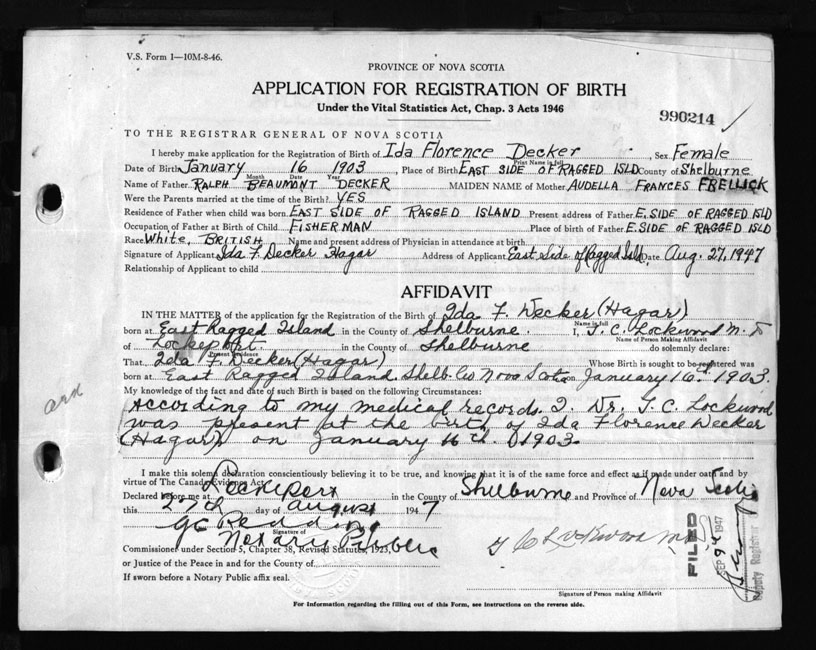 V.S. Form 1—10M-8-46.
PROVINCE OF NOVA SCOTIA
APPLICATION FOR REGISTRATION OF BIRTH
Under the Vital Statistics Act, Chap. 3 Acts 1946
990214
TO THE REGISTRAR GENERAL OF NOVA SCOTIA
I hereby make application for the Registration of Birth of Ida Florence Decker Sex Female
Print Name in full
Date of Birth January 16 1903 Place of Birth EAST SIDE OF RAGGED ISLD County of Shelburne
Month Date Year
Name of Father RALPH BEAUMONT DECKER MAIDEN NAME of Mother AUDELLA FRANCES
Were the Parents married at the time of the Birth? YES
Residence of Father when child was born EAST SIDE OF RAGGED ISLAND Present address of Father E. SIDE OF RAGGED ISLD
Occupation of Father at Birth of Child FISHERMAN Place of birth of Father E. SIDE OF RAGGED ISLD
Race White, BRITISH Name and present address of Physician in attendance at birth
Signature of Applicant Ida F. Decker Hagar Address of Applicant East Side of Ragged Isld Date Aug. 27, 1947
Relationship of Applicant to child
AFFIDAVIT
IN THE MATTER of the application for the Registration of the Birth of Ida F. Decker (Hagar)
Name in full
born at East Ragged Island in the County of Shelburne. I, J. C. Lockwood M. D
Name of Person Making Affidavit
of Lockeport in the County of Shelburne do solemnly declare:
Present Residence
That Ida F. Decker (Hagar) Whose Birth is sought to be registered was
born at East Ragged Island Shelb. Co Nova Scotia on January 16th 1903.
My knowledge of the fact and date of such Birth is based on the following Circumstances:
According to my medical records. I. Dr. J. C. Lockwood
was present at the birth of Ida Florence Decker
(Hagar) on January 16th. 1903.
I make this solemn declaration conscientiously believing it to be true, and knowing that it is of the same force and effect as if made under oath and by
virtue of The Canada Evidence Act.
Declared before me at Lockeport in the County of Shelburne and Province of Nova Scotia
this 27th day of August 1947
Signature of
Notary Public
Commissioner under Section 5, Chapter 38, Revised Statutes, 1923,
or Justice of the Peace in and for the County of
If sworn before a Notary Public affix seal.
J C Lockwood M.D.
Signature of Person making Affidavit
FILED
SEP 9 1947
Deputy Registrar
For Information regarding the filling out of this Form, see instructions on the reverse side.